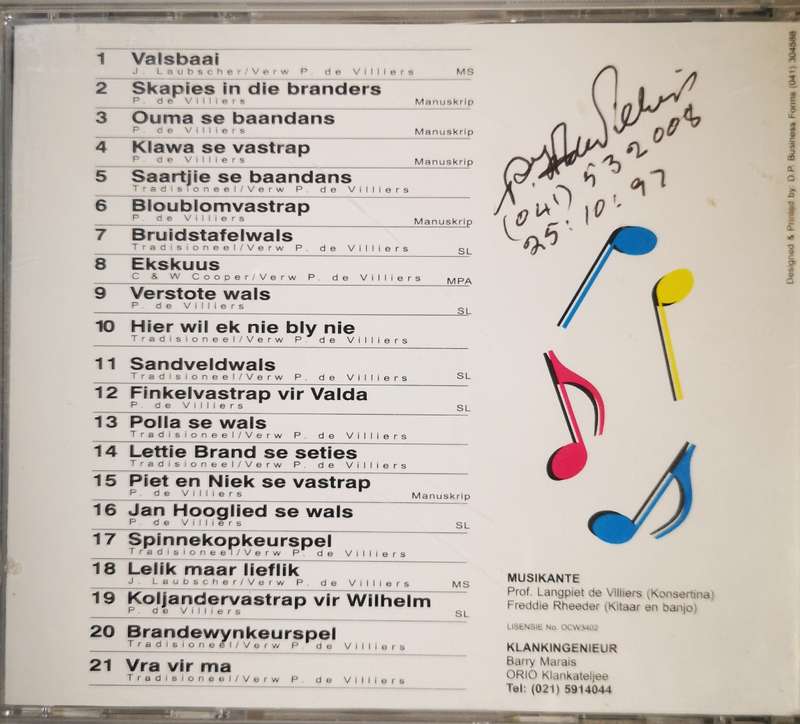 1 Valsbaai
J. Laubscher/Verw P. de Villiers MS
2 Skapies in die branders
P. de Villiers Manuskrip
3 Ouma se baandans
P. de Villiers Manuskrip
4 Klawa se vastrap
P. de Villiers Manuskrip
5 Saartjie se baandans
Tradisioneel/Verw P. de Villiers
6 Bloublomvastrap
P. de Villiers Manuskrip
7 Bruidstafelwals
Tradisioneel/Verw P. de Villiers SL
8 Ekskuus
C & W Cooper/Verw P. de Villiers MPA
9 Verstote wals
P. de Villiers SL
10 Hier wil ek nie bly nie
Tradisioneel/Verw P. de Villiers
11 Sandveldwals
Tradisioneel/Verw P. de Villiers SL
12 Finkelvastrap vir Valda
P. de Villiers SL
13 Polla se wals
Tradisioneel/Verw P. de Villiers
14 Lettie Brand se seties
Tradisioneel/Verw P. de Villiers
15 Piet en Niek se vastrap
P. de Villiers Manuskrip
16 Jan Hooglied se wals
P. de Villiers SL
17 Spinnekopkeurspel
Tradisioneel/Verw P. de Villiers
18 Lelik maar lieflik
J. Laubscher/Verw P. de Villiers MS
19 Koljandervastrap vir Wilhelm
P. de Villiers SL
20 Brandewynkeurspel
Tradisioneel/Verw P. de Villiers
21 Vra vir ma
Tradisioneel/Verw P. de Villiers
de Villiers
(041) 532008
25:10:97
MUSIKANTE
Prof. Langpiet de Villiers (Konsertina)
Freddie Rheeder (Kitaar en banjo)
LISENSIE No. OCW3402
KLANKINGENIEUR
Barry Marais
ORIO Klankateljee
Tel: (021) 5914044
Designed & Printed by: D.P. Business Forms (041) 304588